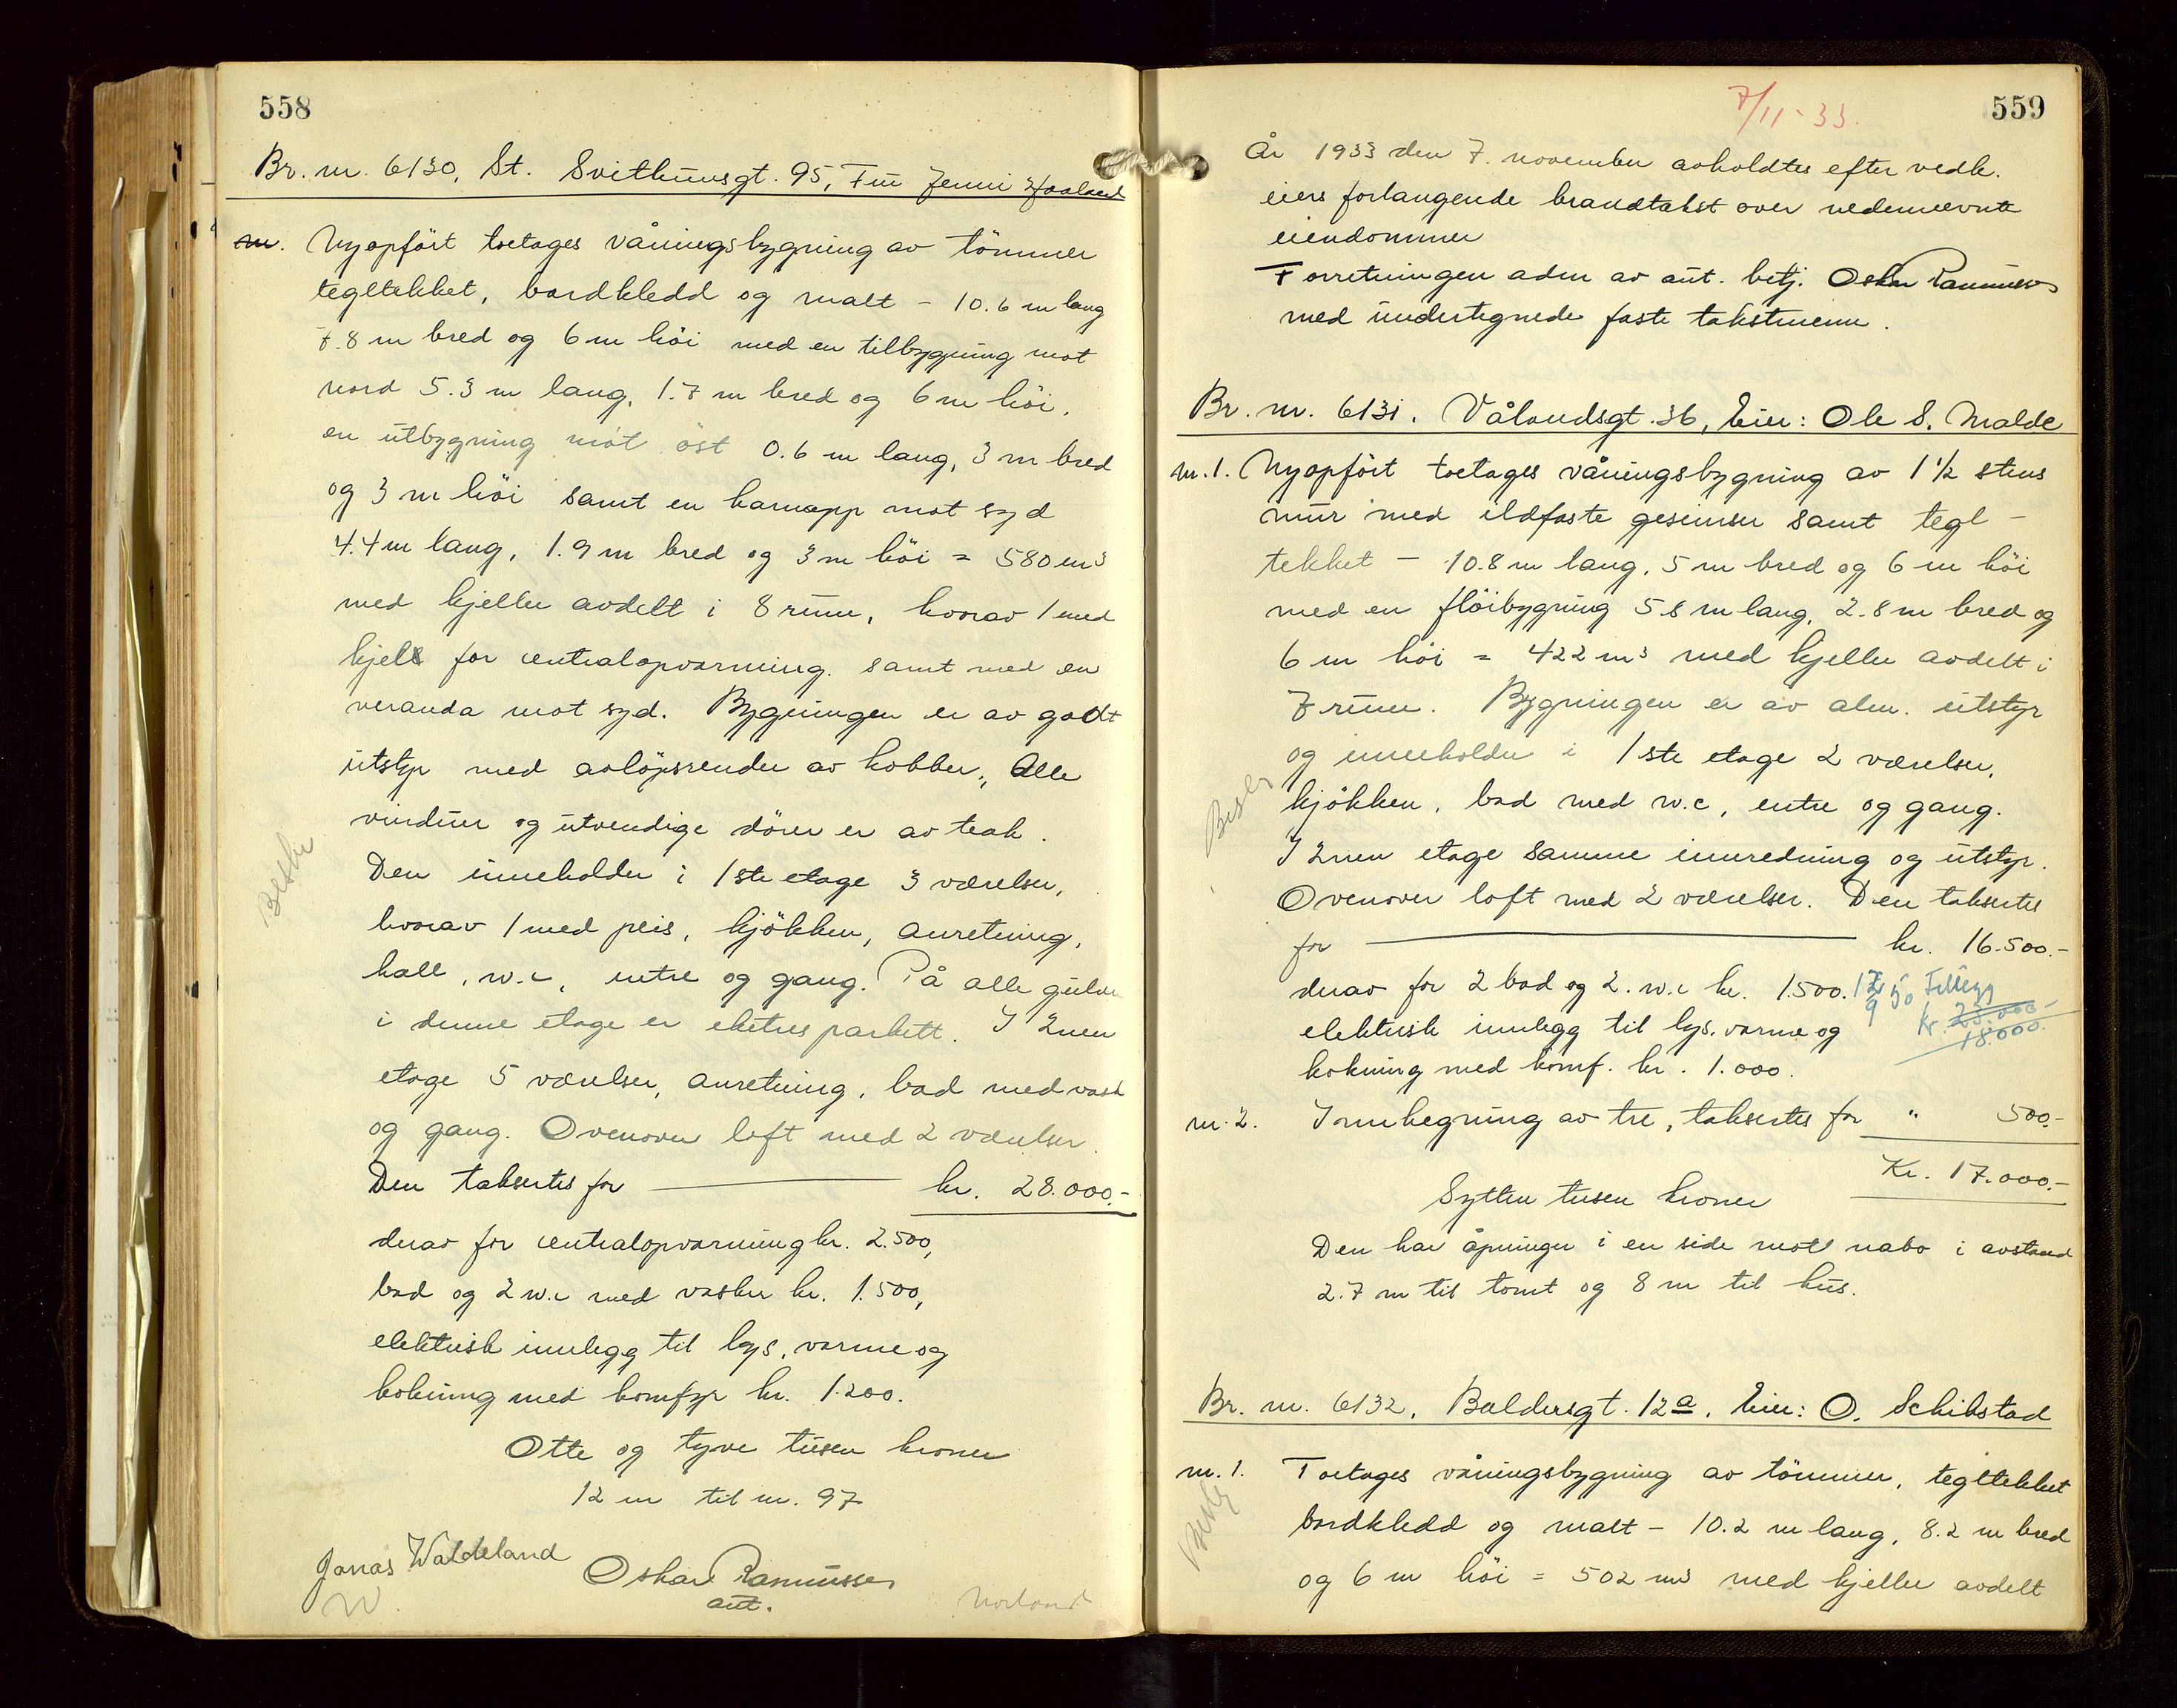 558
Br. nr. 6130, St. Svithunsgt. 95, Fru Jenni Haaland
nr. Nyopført toetages våningsbygning av tömmer
tegltekket, bordkledd og malt - 10.6 m lang
7.8 m bred og 6 m höi med en tilbygning mot
nord 5.3 m lang, 1.7 m bred og 6 m höi,
en utbygning mot öst 0.6 m lang, 3 m bred
og 3 m höi samt en karnapp mot syd
4.4 m lang, 1.9 m bred og 3 m höi = 580 m³
med kjeller avdelt i 8 rum, hvorav 1 med
kjel for centralopvarming. samt med en
veranda mot syd. Bygningen er av godt
utstyr med avlöpsrender av kobber, Alle
vinduer og utvendige dörer er av teak.
Den inneholder i 1ste etage 3 værelser,
hvorav 1 med peis, kjökken, anretning,
hall, w.c, entre og gang. På alle gulve
i denne etage er eketres parkett. I 2nen
etage 5 værelser, anretning, bad med vask
og gang. Ovenover loft med 2 værelser
Den taksertes for kr. 28.000.-
derav for centralopvarming kr. 2.500,
bad og 2 w.c med vasker kr. 1.500,
elektrisk innlegg til lys, varme og
kokning med komfyr kr. 1.200.
Otte og tyve tusen kroner
12 m til nr. 97
Beskr
Jonas Waldeland
Oskar Rasmussen
ast.
W.
Norland
7/11-33.
559
År 1933 den 7. november avholdtes efter vedk.
eiers forlangende brandtakst over nedennevnte
eiendommer
Forretningen adm av aut. betj. Oskar Rasmussen
med undertegnede faste takstmenn.
Br. nr. 6131. Vålandsgt. 36, Eier: Ole S. Malde
nr. 1. Nyopfört toetages våningsbygning av 1 1/2 stens
mur med ildfaste gesimser samt tegl-
tekket - 10.8 m lang, 5 m bred og 6 m höi
med en flöibygning 5.8 m lang, 2.8 m bred og
6 m höi = 422 m³ med kjeller avdelt i
7 rum. Bygningen er av alm. utstyr
og inneholder i 1ste etage 2 værelser,
kjökken, bad med w.c, entre og gang.
I 2nen etage samme innredning og utstyr.
Ovenover loft med 2 værelser. Den taksertes
for kr. 16.500.-
derav for 2 bad og 2. w.c kr. 1.500.
elektrisk innlegg til lys, varme og
kokning med komf. kr. 1.000.
Tillegg
kr. 23.000
18.000.
nr. 2. Innhegning av tre, taksertes for " 500.-
Kr. 17.000.-
Sytten tusen kroner
Den har åpninger i en side mot nabo i avstand
2.7 m til tomt og 8 m til hus.
Br. nr. 6132. Baldersgt. 12a. Eier: O. Schibstad
nr. 1. Toetages våningsbygning av tömmer, tegltekket
bordkledd og malt - 10.2 m lang, 8.2 m bred
og 6 m höi = 502 m³ med kjeller avdelt